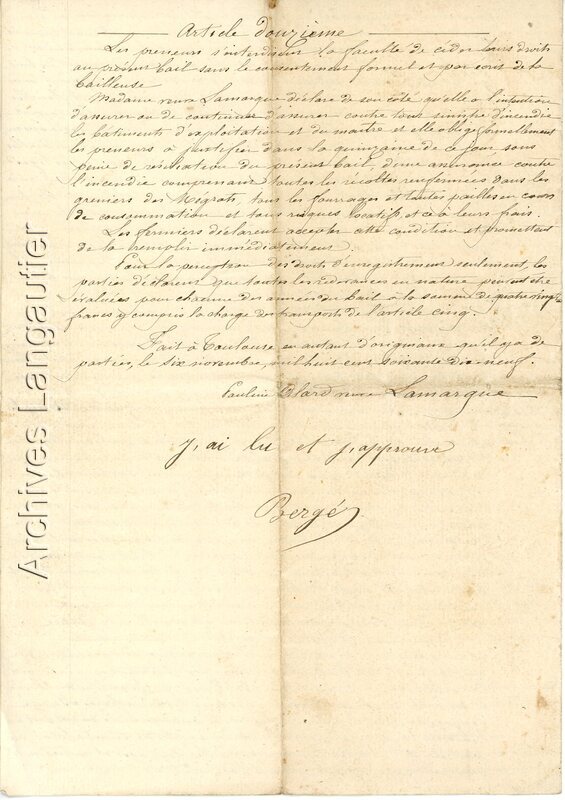 Article douzième
Les preneurs s'interdisent la faculté de céder leurs droits
au présent bail sans le consentement formel et par écrit de la
bailleuse
Madame veuve Lamarque déclare de son côté qu'elle a l'intention
d'assurer ou de continuer d'assurer contre tous sinistre d'incendie
les bâtiments d'exploitation et du maître et elle oblige formellement
les preneurs à justifier dans la quinzaine de ce jour, sous
peine de résiliation du présent bail, d'une assurance contre
l'incendie comprenant toutes les récoltes renfermées dans les
greniers des Migrats, tous les fourrages et toutes pailles en cours
de consommation et tous risques locatifs et ce à leurs frais.
Les fermiers déclarent accepter cette condition et promettent
de la remplir immédiatement.
Pour la perception des droits d'enregistrement seulement, les
parties déclarent que toutes les redevances en nature peuvent être
évaluées pour chacune des années du bail à la somme de quatre vingts
francs y compris la charge des transports de l'article cinq.
Fait à Toulouse en autant d'originaux qu'il y a de
parties, le six novembre, mil huit cent soixante dix-neuf.
Pauline veuve Lamarque
J'ai lu et j'approuve
Bergé
Archives Langautier